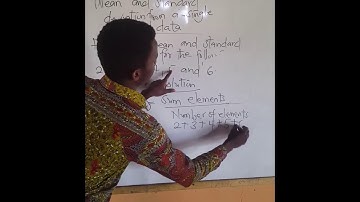 Mean and Standard
deviation from a single
data
mean and Standard
for the follow
2 5 and 6
Solution
Sum elements
Number of elements
2+3+4+5+